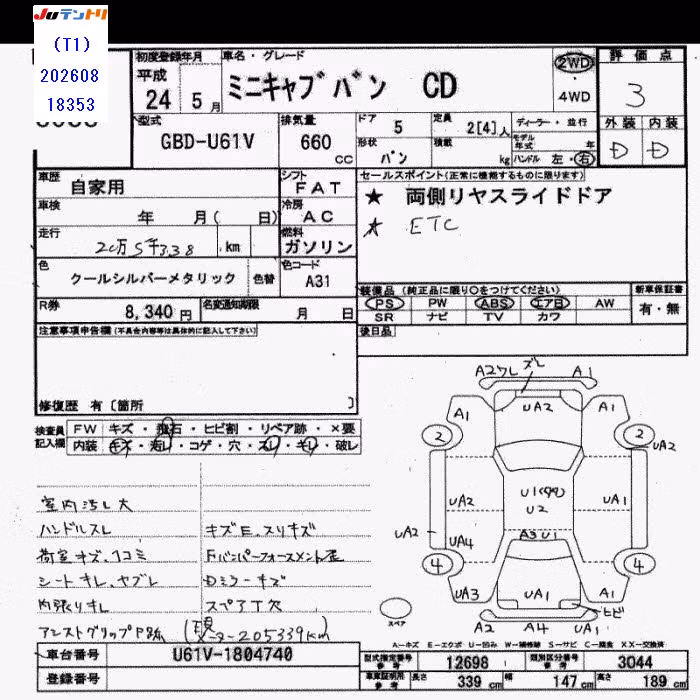 JUテントリ
(T1)
202608
18353
初度登録年月 車名・グレード 評価点
平成 24 年 5 月 ミニキャブバン CD 2WD ・ 4WD 3
型式 GBD-U61V 排気量 660 cc
ドア 5 定員 2[4]人 ディーラー・並行
形状 バン 積載 kg モデル年式 年 ハンドル 左・右
外装 内装
D D
車歴 自家用 シフト FAT
セールスポイント(正常に機能するものに限ります)
★ 両側リヤスライドドア
★ ETC
車検 年 月( 日) 冷房 AC
走行 20万5千338 km 燃料 ガソリン
色 クールシルバーメタリック 色替 色コード A31
装備品 (純正品に限り○をつけてください) 新車保証書
PS PW ABS エアB AW 有・無
SR ナビ TV カワ
R券 8,340 円 名変通知期限 月 日
後日品
注意事項申告欄(不具合内容等は具体的に記入して下さい)
修復歴 有 [箇所 ]
検査員記入欄 FW キズ・飛石・ヒビ割・リペア跡・×要
内装 キズ・汚レ・コゲ・穴・スレ・キレ・破レ
室内汚レ大
ハンドルスレ キズE、スリキズ
荷室キズ、凹コミ Fバンパーフォースメント歪
シートキレ、ヤブレ Dミラーキズ
内張りキレ スペアT欠
アシストグリップP跡 (現メーター205339km)
A2ワレ ズレ A1
A1 UA2 A1
2 2 UA2
UA2 U1 U2 UA1
UA2 UA4 A3 U1
4 4
UA3 UA1 UA1
ヒビ
スペア A2 A4 UA1
A-キズ E-エクボ U-凹み W-補修跡 S-サビ C-腐食 XX-交換済
車台番号 U61V-1804740 型式指定番号 参考 12698 類別区分番号 参考 3044
登録番号 車庫証明用 参考 長さ 339 cm 幅 147 cm 高さ 189 cm